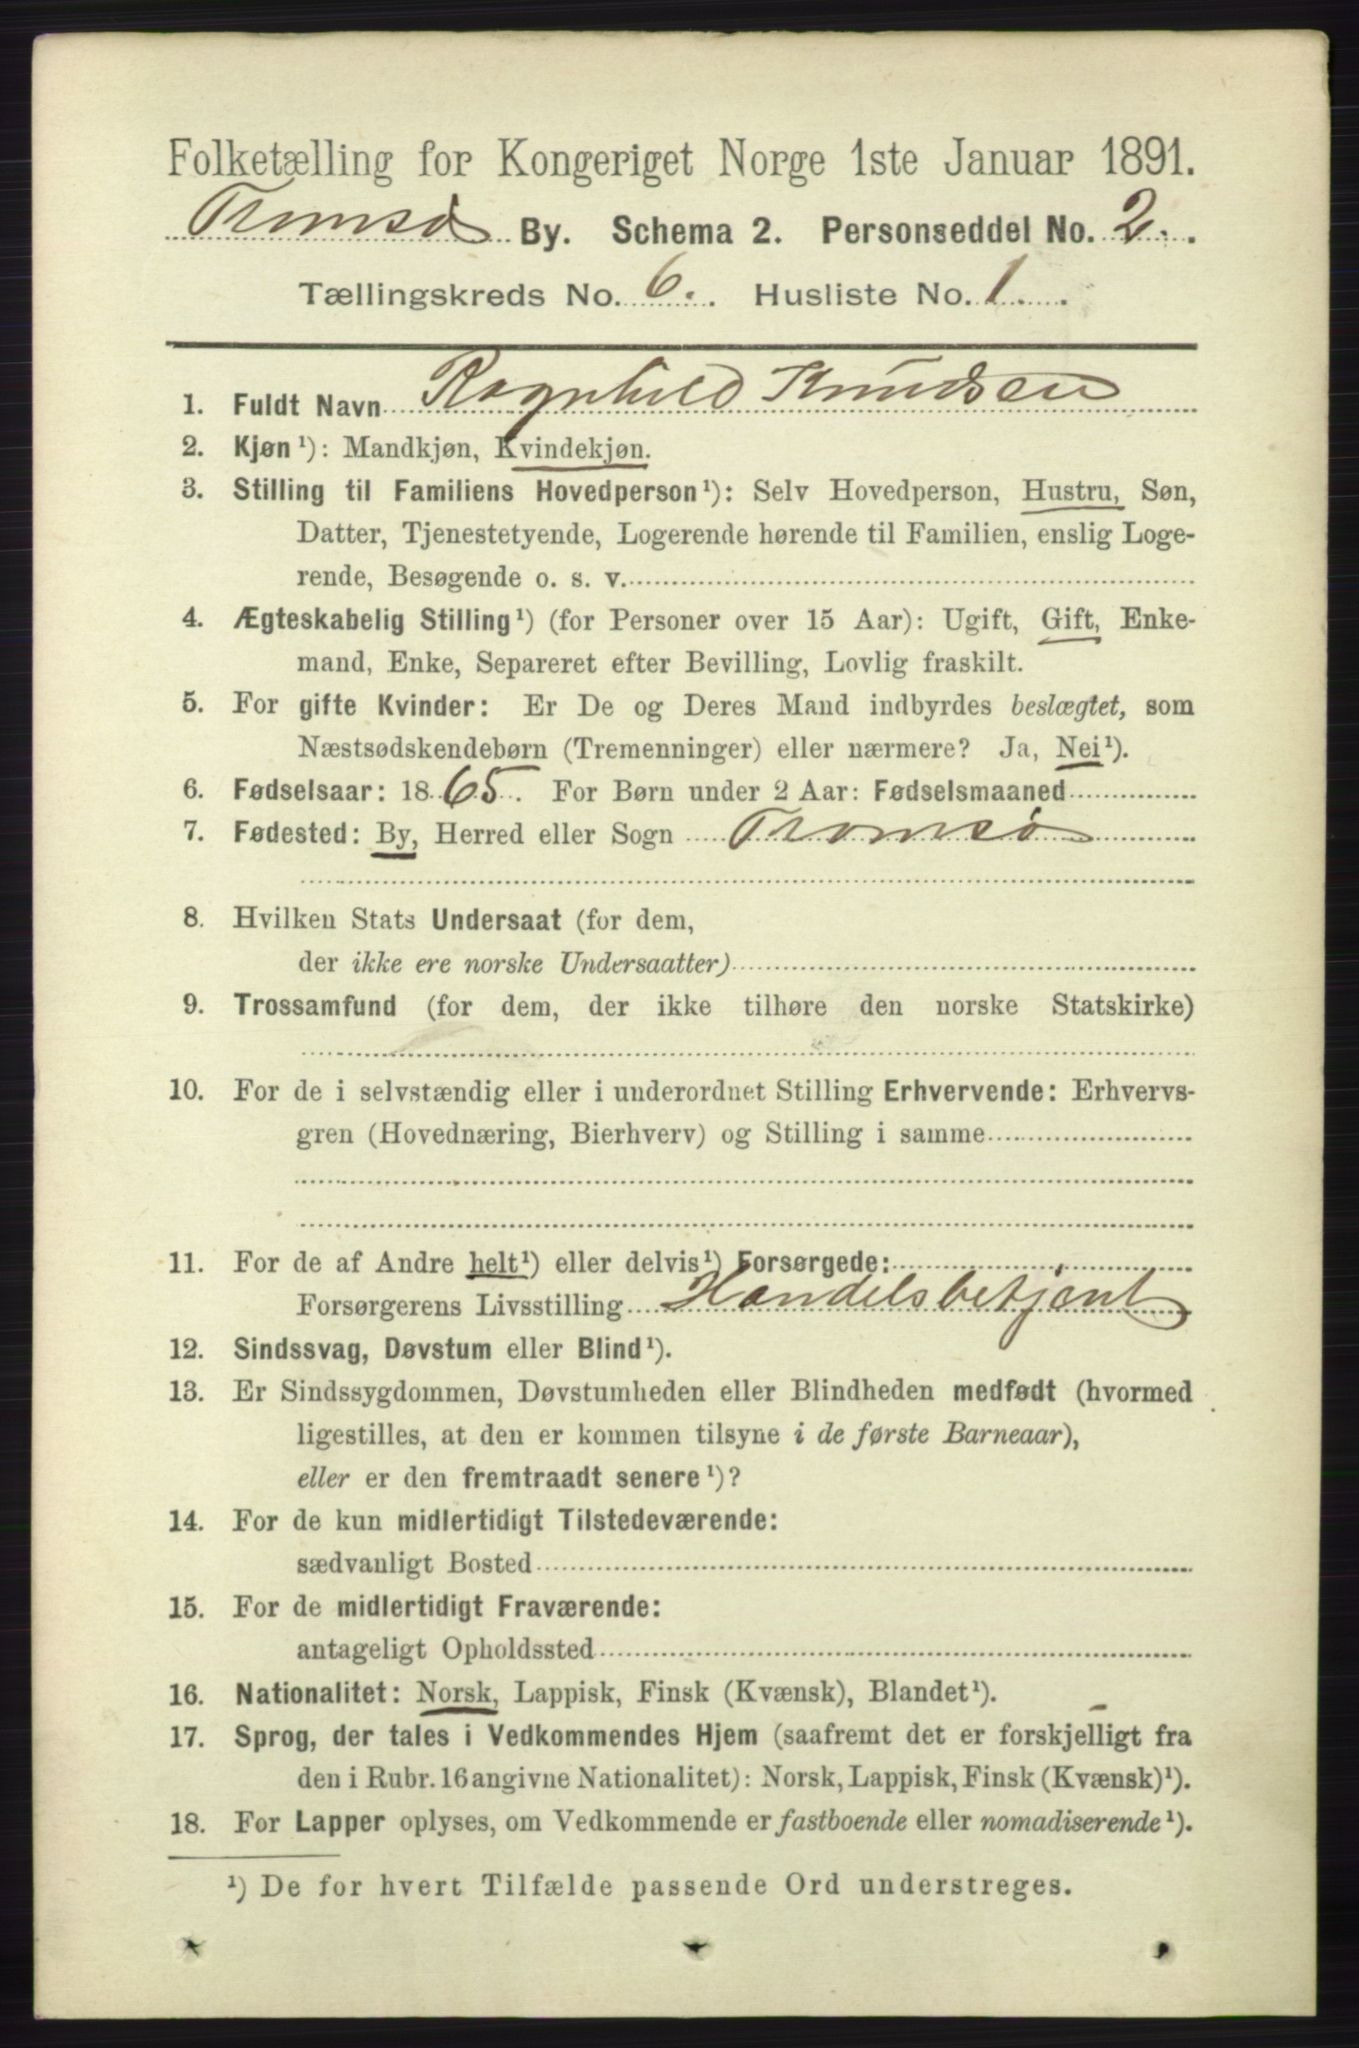 Folketælling for Kongeriget Norge 1ste Januar 1891.
Tromsø By. Schema 2. Personseddel No. 2.
Tællingskreds No. 6. Husliste No. 1.
1. Fuldt Navn Ragnhild Knudsen
2. Kjøn¹): Mandkjøn, Kvindekjøn.
3. Stilling til Familiens Hovedperson¹): Selv Hovedperson, Hustru, Søn,
Datter, Tjenestetyende, Logerende hørende til Familien, enslig Loge-
rende, Besøgende o. s. v.
4. Ægteskabelig Stilling¹) (for Personer over 15 Aar): Ugift, Gift, Enke-
mand, Enke, Separeret efter Bevilling, Lovlig fraskilt.
5. For gifte Kvinder: Er De og Deres Mand indbyrdes beslægtet, som
Næstsødskendebørn (Tremenninger) eller nærmere? Ja, Nei¹).
6. Fødselsaar: 1865. For Børn under 2 Aar: Fødselsmaaned
7. Fødested: By, Herred eller Sogn Tromsø
8. Hvilken Stats Undersaat (for dem,
der ikke ere norske Undersaatter)
9. Trossamfund (for dem, der ikke tilhøre den norske Statskirke)
10. For de i selvstændig eller i underordnet Stilling Erhvervende: Erhvervs-
gren (Hovednæring, Bierhverv) og Stilling i samme
11. For de af Andre helt¹) eller delvis¹) Forsørgede:
Forsørgerens Livsstilling Handelsbetjent
12. Sindssvag, Døvstum eller Blind¹).
13. Er Sindssygdommen, Døvstumheden eller Blindheden medfødt (hvormed
ligestilles, at den er kommen tilsyne i de første Barneaar),
eller er den fremtraadt senere¹)?
14. For de kun midlertidigt Tilstedeværende:
sædvanligt Bosted
15. For de midlertidigt Fraværende:
antageligt Opholdssted
16. Nationalitet: Norsk, Lappisk, Finsk (Kvænsk), Blandet¹).
17. Sprog, der tales i Vedkommendes Hjem (saafremt det er forskjelligt fra
den i Rubr. 16 angivne Nationalitet): Norsk, Lappisk, Finsk (Kvænsk)¹).
18. For Lapper oplyses, om Vedkommende er fastboende eller nomadiserende¹).
¹) De for hvert Tilfælde passende Ord understreges.